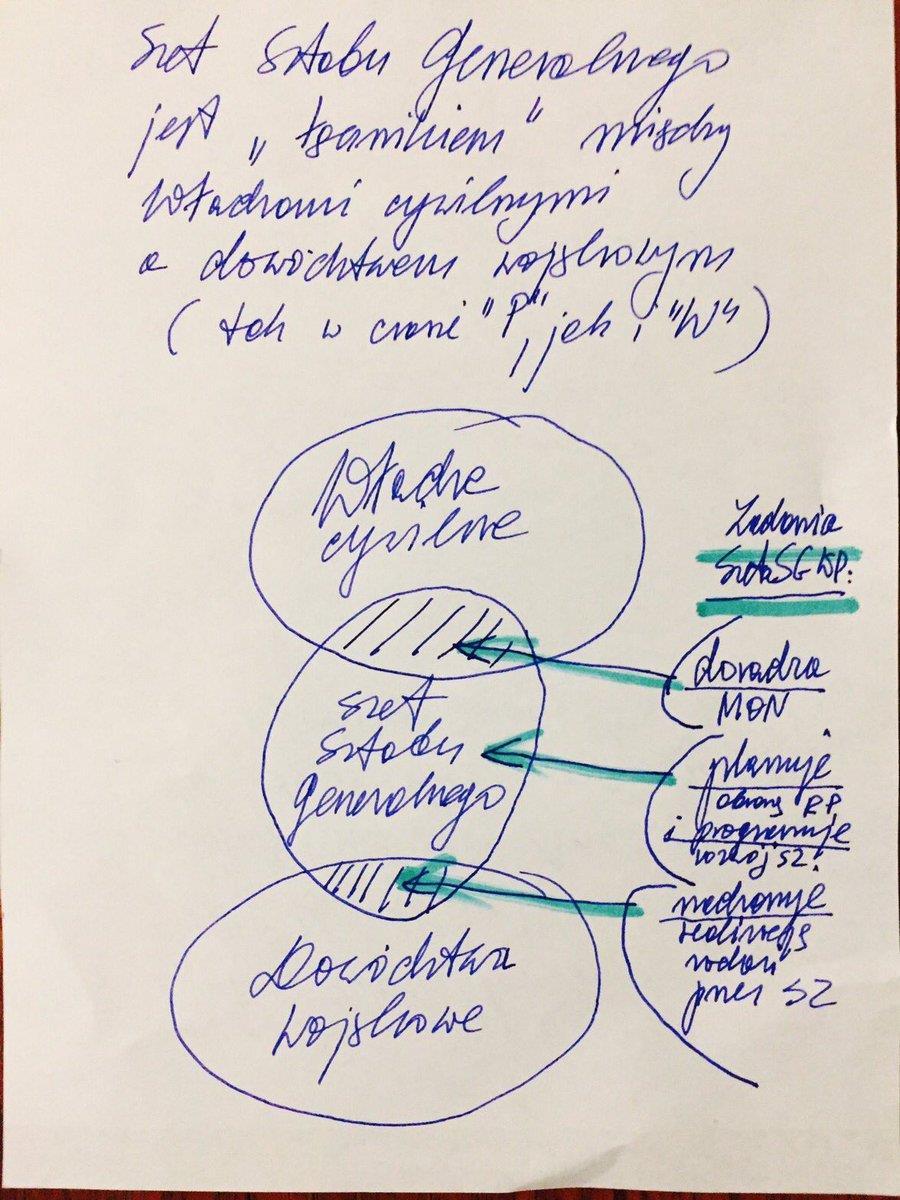 Szef Sztabu Generalnego
jest „łącznikiem" między
Władzami cywilnymi
a dowództwem wojskowym
(tak w czasie "P", jak i "W")
Władze
cywilne
Szef
Sztabu
Generalnego
Dowództwa
wojskowe
Zadania
SzefaSG WP:
doradza
MON
planuje
obronę RP
i programuje
rozwój SZ
nadzoruje
realizację
zadań
przez SZ